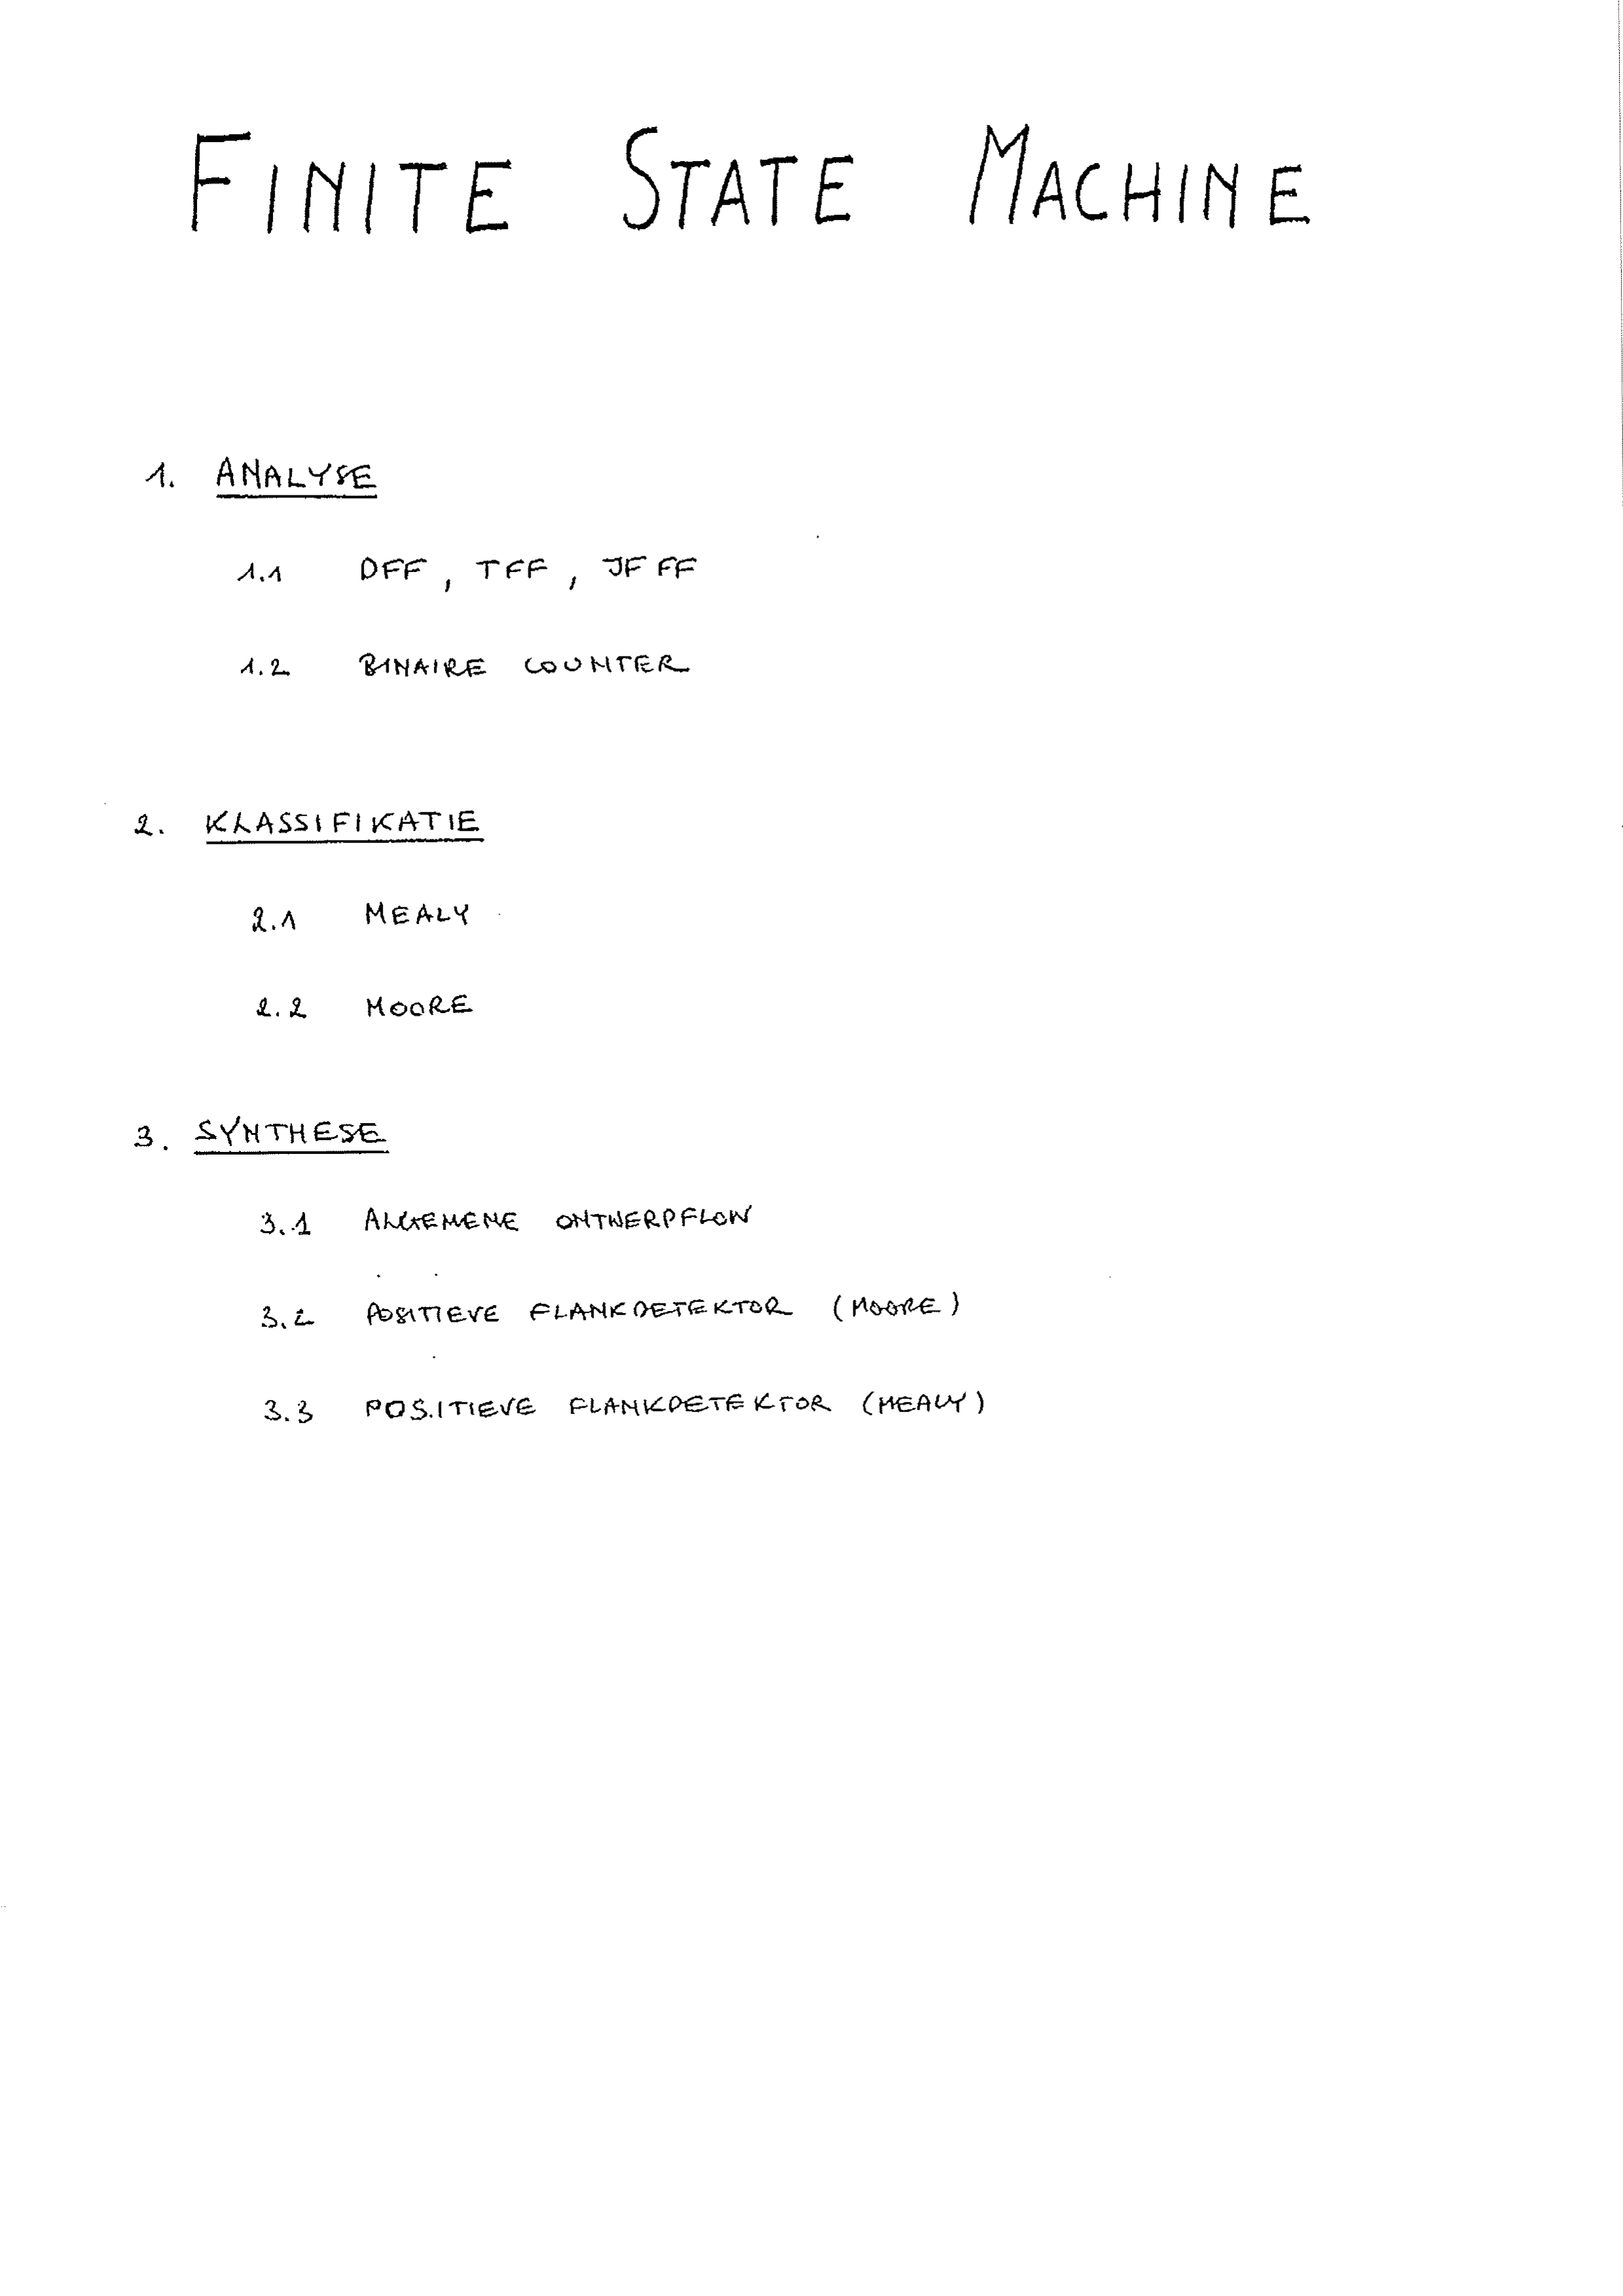 FINITE STATE MACHINE
1. ANALYSE
1.1 DFF, TFF, JF FF
1.2 BINAIRE COUNTER
2. KLASSIFIKATIE
2.1 MEALY
2.2 MOORE
3. SYNTHESE
3.1 ALGEMENE ONTWERPFLOW
3.2 POSITIEVE FLANKDETEKTOR (MOORE)
3.3 POSITIEVE FLANKDETEKTOR (MEALY)